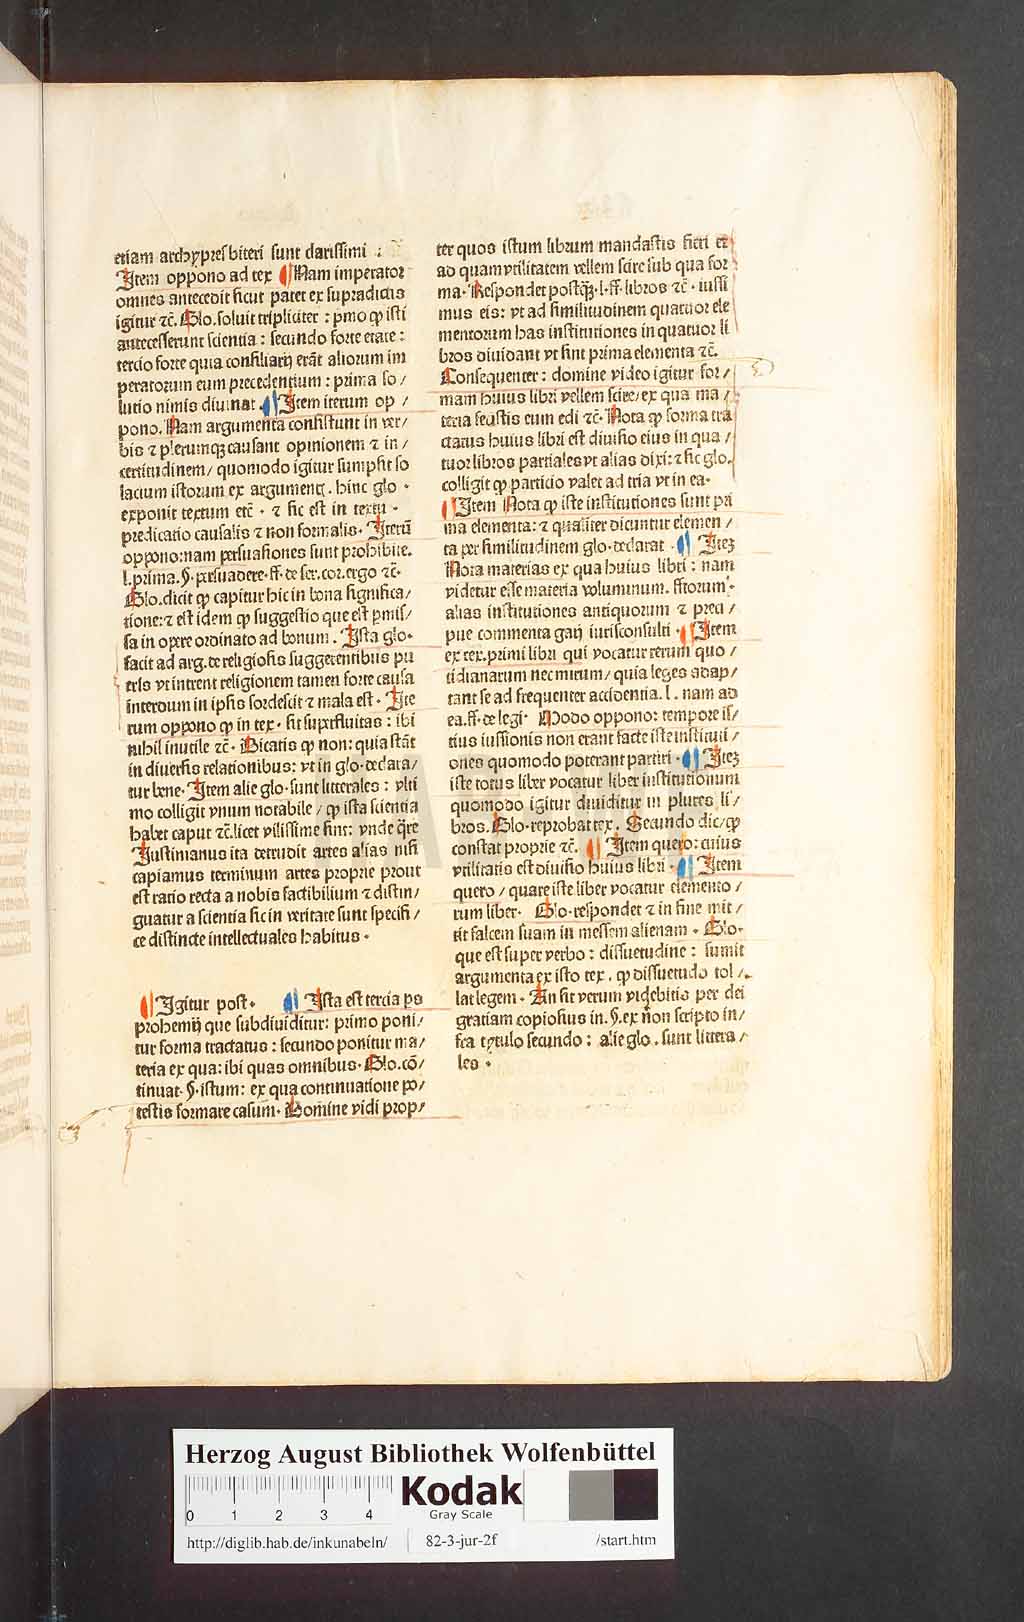 etiam archypresbiteri sunt clarissimi :
Item oppono ad tex ¶ Nam imperator
omnes antecedit sicut patet ex supradictis
igitur ⁊c̃. Glo. soluit tripliciter : p̱mo ꝙ isti
antecesserunt scientia : secundo forte etate :
tercio forte quia consiliarij erãt aliorum im
peratorum eum precedentium : prima so /
lutio nimis diuinat ¶ Item iterum op /
pono. Nam argumenta consistunt in ver /
bis ⁊ plerumqꝫ causant opinionem ⁊ in /
certitudinem / quomodo igitur sumpsit so
lacium istorum ex argument. hinc glo ·
exponit textum etc̃ · ⁊ sic est in textu ·
predicatio causalis ⁊ non formalis · Iterũ
oppono: nam persuasiones sunt prohibite.
l. prima. §. persuadere · ff. de ser. cor. ergo ⁊c̃·
Glo. dicit ꝙ capitur hic in bona significa /
tione: ⁊ est idem ꝙ suggestio que est p̱mis /
sa in opere ordinato ad bonum . Ista glo ·
facit ad arg. de religiosis suggerentibus pu
eris vt intrent religionem tamen forte causa
interdum in ipsis sordescit ⁊ mala est · Ite
rum oppono ꝙ in tex · sit suꝑfluitas : ibi
nihil inutile ⁊c̃ · Dicatis ꝙ non: quia stãt
in diuersis relationibus: vt in glo · declara /
tur bene · Item alie glo · sunt litterales : vlti
mo colligit vnum notabile / ꝙ ista scientia
habet caput ⁊c̃. licet vilissime sint: vnde q̃re
Iustinianus ita detrudit artes alias nisi
capiamus terminum artes proprie prout
est ratio recta a nobis factibilium ⁊ distin /
guatur a scientia sic in veritate sunt specifi /
ce distincte intellectuales habitus ·
¶ Igitur post · ¶ Ista est tercia ps
prohemij que subdiuiditur: primo poni /
tur forma tractatus : secundo ponitur ma /
teria ex qua: ibi quas omnibus · Glo. cõ /
tinuat · §. istum: ex qua continuatione po /
testis formare casum · Domine vidi prop /
ter quos istum librum mandastis fieri et
ad quam vtilitatem vellem scire sub qua for
ma · Respondet postq̃ꝫ · l · ff · libros ⁊c̃ · iussi
mus eis: vt ad similitudinem quatuor ele
mentorum has institutiones in quatuor li
bros diuidant vt sint prima elementa ⁊c̃.
Consequenter : domine video igitur for /
mam huius libri vellem scire / ex qua ma /
teria fecistis eum edi ⁊c̃ · Nota ꝙ forma tra
ctatus huius libri est diuisio eius in qua /
tuor libros partiales vt alias dixi: ⁊ sic glo.
colligit ꝙ particio valet ad tria vt in ea ·
¶ Item Nota ꝙ iste institutiones sunt pri
ma elementa: ⁊ qualiter dicuntur elemen /
ta per similitudinem glo · declarat · ¶ Iteꝫ
Nota materias ex qua huius libri : nam
videtur esse materia voluminum. fftorum ·
alias institutiones antiquorum ⁊ preci /
pue commenta gaij iurisconsulti · ¶ Item
ex tex. primi libri qui vocatur rerum quo /
tidianarum nec mirum / quia leges adap /
tant se ad frequenter accidentia. l . nam ad
ea. ff · de legi · Modo oppono: tempore is /
tius iussionis non erant facte iste institui /
ones quomodo poterant partiri · ¶ Iteꝫ
iste totus liber vocatur liber institutionum
quomodo igitur diuiditur in plures li /
bros. Glo · reprobat tex . Secundo dic / ꝙ
constat proprie ⁊c̃. ¶ Item quero: cuius
vtilitatis est diuisio huius libri · ¶ Item
quero / quare iste liber vocatur elemento /
rum liber · Glo · respondet ⁊ in fine mit /
tit falcem suam in messem alienam · Glo ·
que est super verbo : dissuetudine : sumit
argumenta ex isto tex . ꝙ dissuetudo tol /
lat legem · An sit verum videbitis per dei
gratiam copiosius in. §. ex non scripto in /
fra tytulo secundo : alie glo . sunt littera /
les ·
HAB
Herzog August Bibliothek Wolfenbüttel
0 1 2 3 4
Kodak
Gray Scale
http://diglib.hab.de/inkunabeln/ 82-3-jur-2f /start.htm